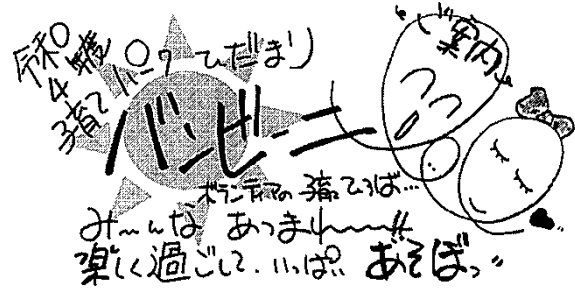 令和4年度
子育てパーク ひだまり
バンビーニ
案内
ボランティアの子育てひろば…
み〜んな あつまれ〜〜!!
楽しく過ごして、いっぱい あそぼっ